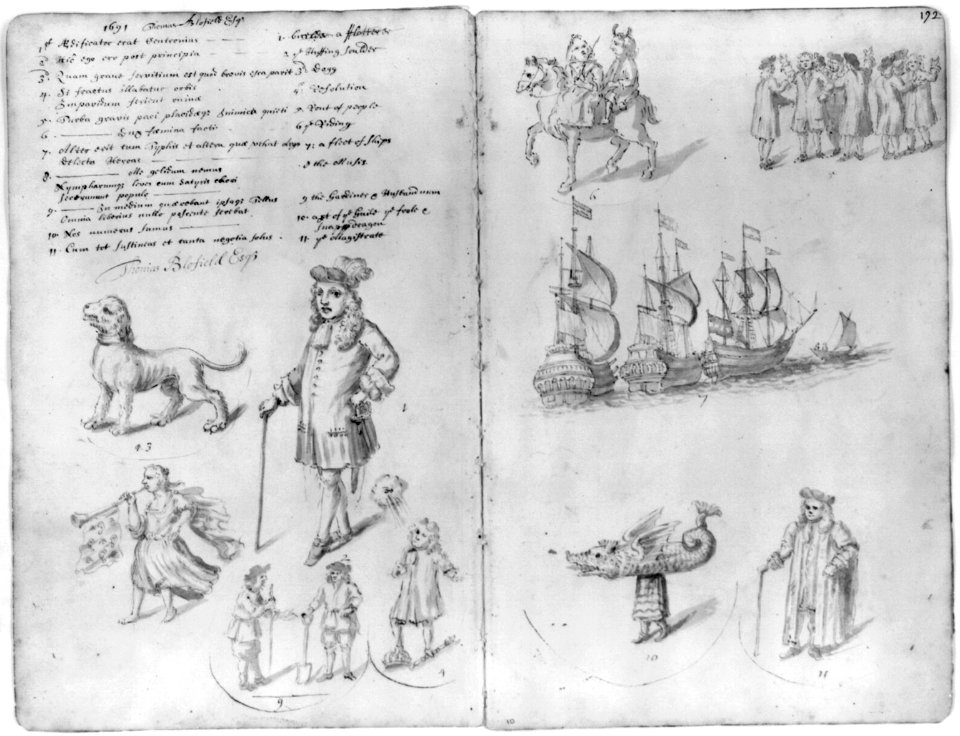 192
1691 Thomas Blofield Esqr
1st Ædificator erat Centronius
2 Hic ego ero post principia
3. Quam grave servitium est quod brevis esca parit
4. Si fractus illabatur orbis
Impavidum ferient ruinæ
5. Turba gravis paci placidæq; inimica quieti
6 dux fæmina facti
7. Alter erit tum Typhis et altera quæ vehat Argo
Delecta Heroas
8. Me gelidum nemus
Nympharumq; leves cum Satyris chori
Secernunt populo
9 In medium quærebant ipsaq; Tellus
Omnia liberius nullo poscente ferebat
10 Nos numerus sumus
11. Cum tot sustineas et tanta negotia solus
1. a
2 ye
3. Dogg
4. Resolution
5. Rout of people
6 ye Riding
7; a fleet of ships
8 the Muses
9 the Gardiner & Husbandman
10. of ye Guild ye foole &
Snapdragon
11. ye Magistrate
Thomas Blofield Esqr
1
3
9
4
6
5
7
10
11